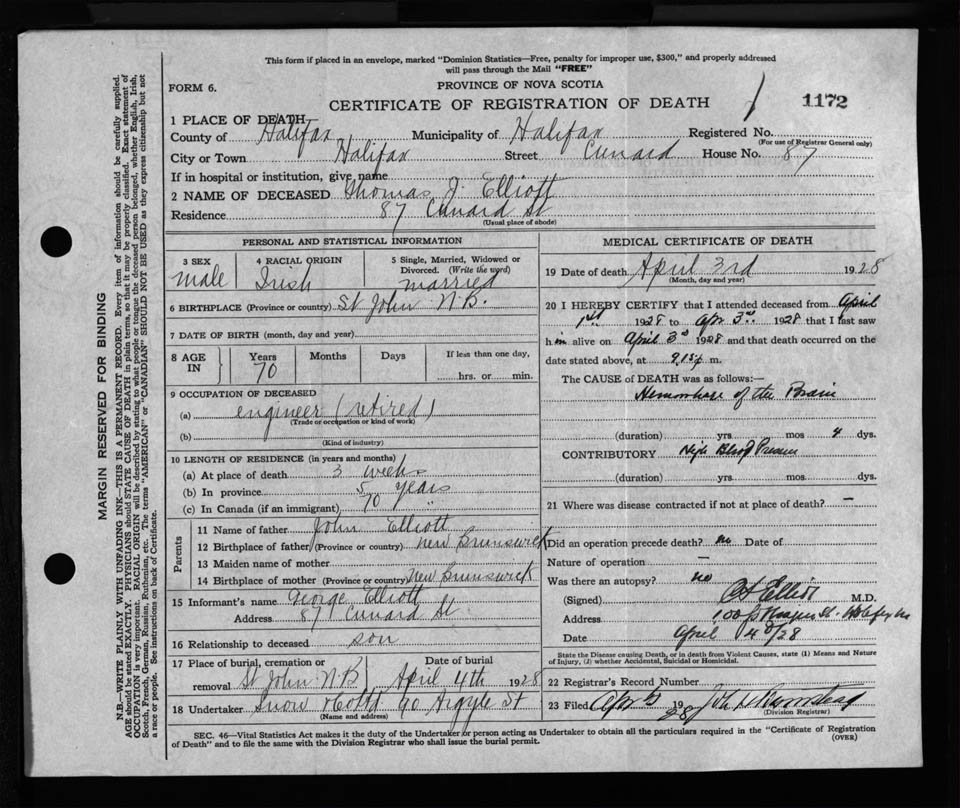 This form if placed in an envelope, marked "Dominion Statistics—Free, penalty for improper use, $300," and properly addressed
will pass through the Mail "FREE"
FORM 6.
PROVINCE OF NOVA SCOTIA
CERTIFICATE OF REGISTRATION OF DEATH
1172
1 PLACE OF DEATH
County of Halifax Municipality of Halifax Registered No.
(For use of Registrar General only)
City or Town Halifax Street Cunard House No. 87
If in hospital or institution, give name
2 NAME OF DECEASED Thomas J. Elliott
Residence 87 Cunard St
(Usual place of abode)
PERSONAL AND STATISTICAL INFORMATION
3 SEX 4 RACIAL ORIGIN 5 Single, Married, Widowed or
Divorced. (Write the word)
male Irish married
6 BIRTHPLACE (Province or country) St John N.B.
7 DATE OF BIRTH (month, day and year)
8 AGE IN Years Months Days If less than one day,
70 hrs. or min.
9 OCCUPATION OF DECEASED
(a) engineer (retired)
(Trade or occupation or kind of work)
(b)
(Kind of industry)
10 LENGTH OF RESIDENCE (in years and months)
(a) At place of death 3 weeks
(b) In province 5 years
(c) In Canada (if an immigrant) 70 "
Parents
11 Name of father John Elliott
12 Birthplace of father (Province or country) New Brunswick
13 Maiden name of mother
14 Birthplace of mother (Province or country) New Brunswick
15 Informant's name George Elliott
Address 87 Cunard St
16 Relationship to deceased son
17 Place of burial, cremation or Date of burial
removal St John N.B April 4th 1928
18 Undertaker Snow & Co Ltd 90 Argyle St
(Name and address)
MEDICAL CERTIFICATE OF DEATH
19 Date of death April 3rd 1928
(Month, day and year)
20 I HEREBY CERTIFY that I attended deceased from April
1st 1928 to Apr 3rd 1928 that I last saw
him alive on April 3rd 1928 and that death occurred on the
date stated above, at 9.15 p m.
The CAUSE of DEATH was as follows:—
Hemorrhage of the Brain
(duration) yrs mos 4 dys.
CONTRIBUTORY High Blood Pressure
(duration) yrs mos dys.
21 Where was disease contracted if not at place of death? —
Did an operation precede death? no Date of
Nature of operation —
Was there an autopsy? no
(Signed) Elliott M.D.
Address 100
Date April 4th/28
State the Disease causing Death, or in death from Violent Causes, state (1) Means and Nature
of Injury, (2) whether Accidental, Suicidal or Homicidal.
22 Registrar's Record Number
23 Filed Apr 5 1928 John
(Division Registrar)
SEC. 46—Vital Statistics Act makes it the duty of the Undertaker or person acting as Undertaker to obtain all the particulars required in the "Certificate of Registration
of Death" and to file the same with the Division Registrar who shall issue the burial permit.
(OVER)
MARGIN RESERVED FOR BINDING
N.B.—WRITE PLAINLY WITH UNFADING INK—THIS IS A PERMANENT RECORD. Every item of information should be carefully supplied.
AGE should be stated EXACTLY. PHYSICIANS should STATE CAUSE OF DEATH in plain terms, so that it may be properly classified. Exact statement of
OCCUPATION is very important. RACIAL ORIGIN will be described by stating to what people or tongue the deceased person belonged, whether English, Irish,
Scotch, French, German, Russian, Ruthenian, etc. The terms "AMERICAN" or "CANADIAN" SHOULD NOT BE USED as they express citizenship but not
a race or people. See instructions on back of Certificate.